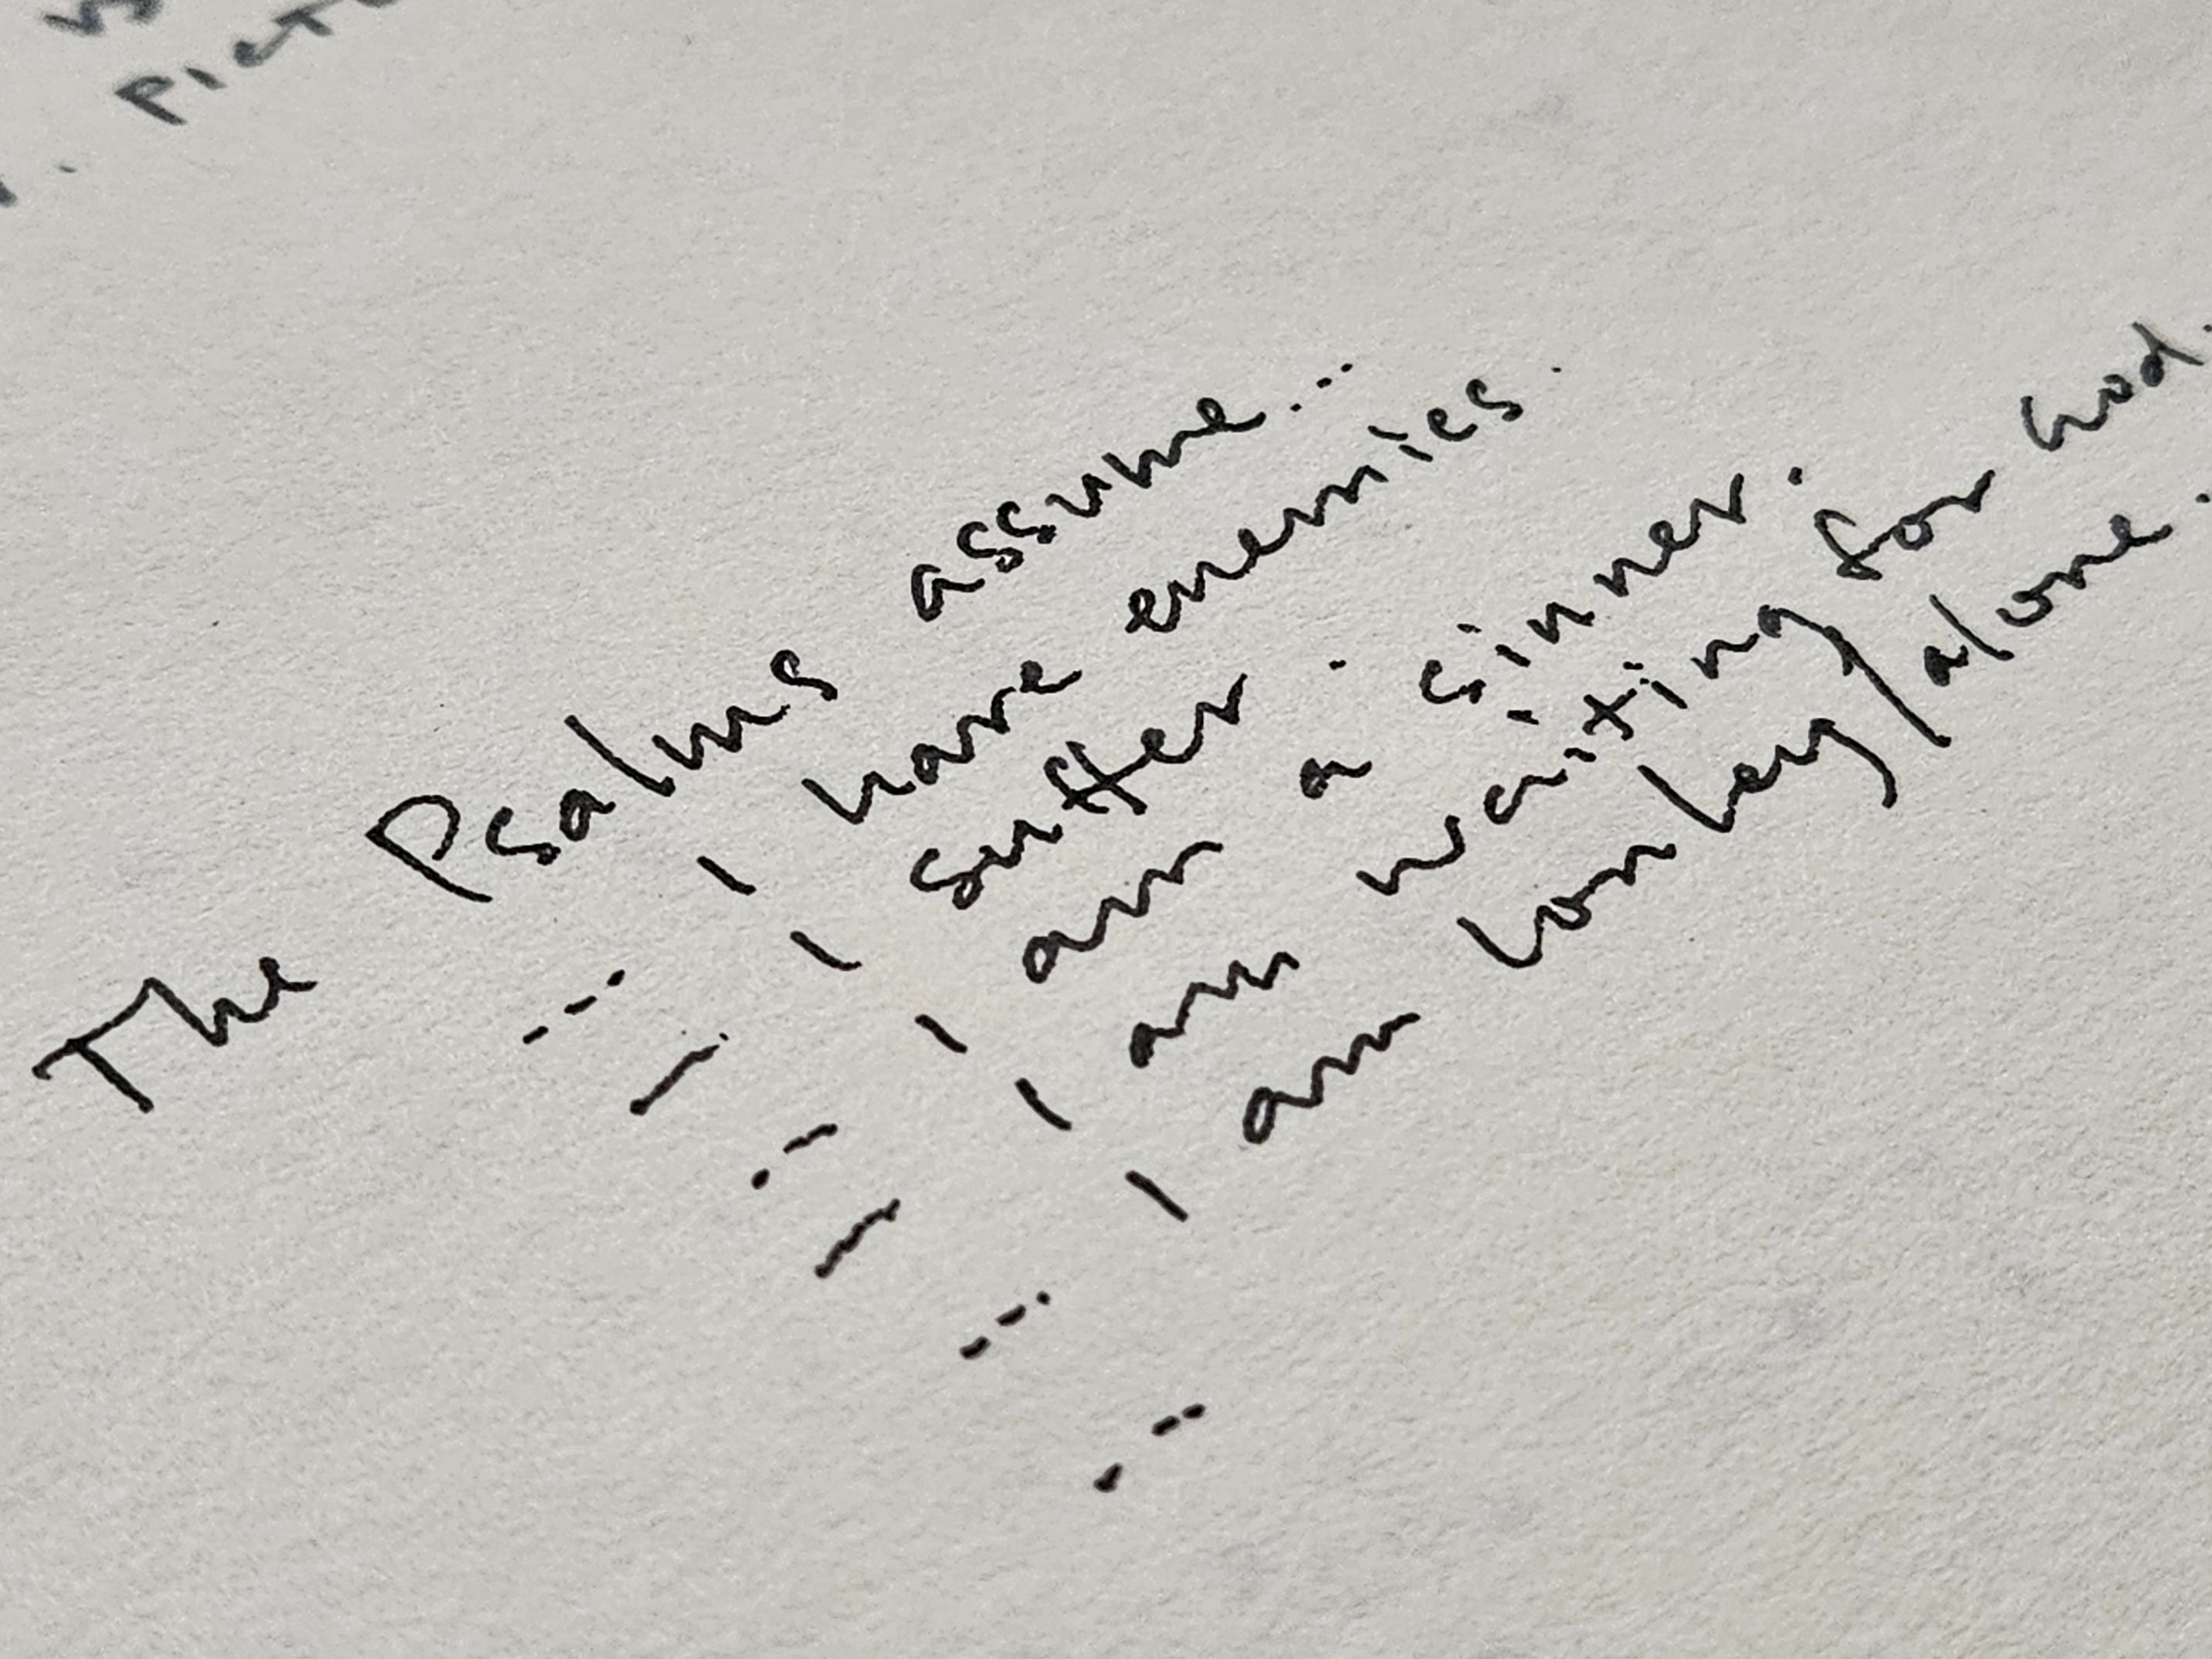 The Psalms assume...
-- I have enemies.
- I suffer.
-- I am a sinner.
- I am waiting for God.
-- I am lonley/alone.